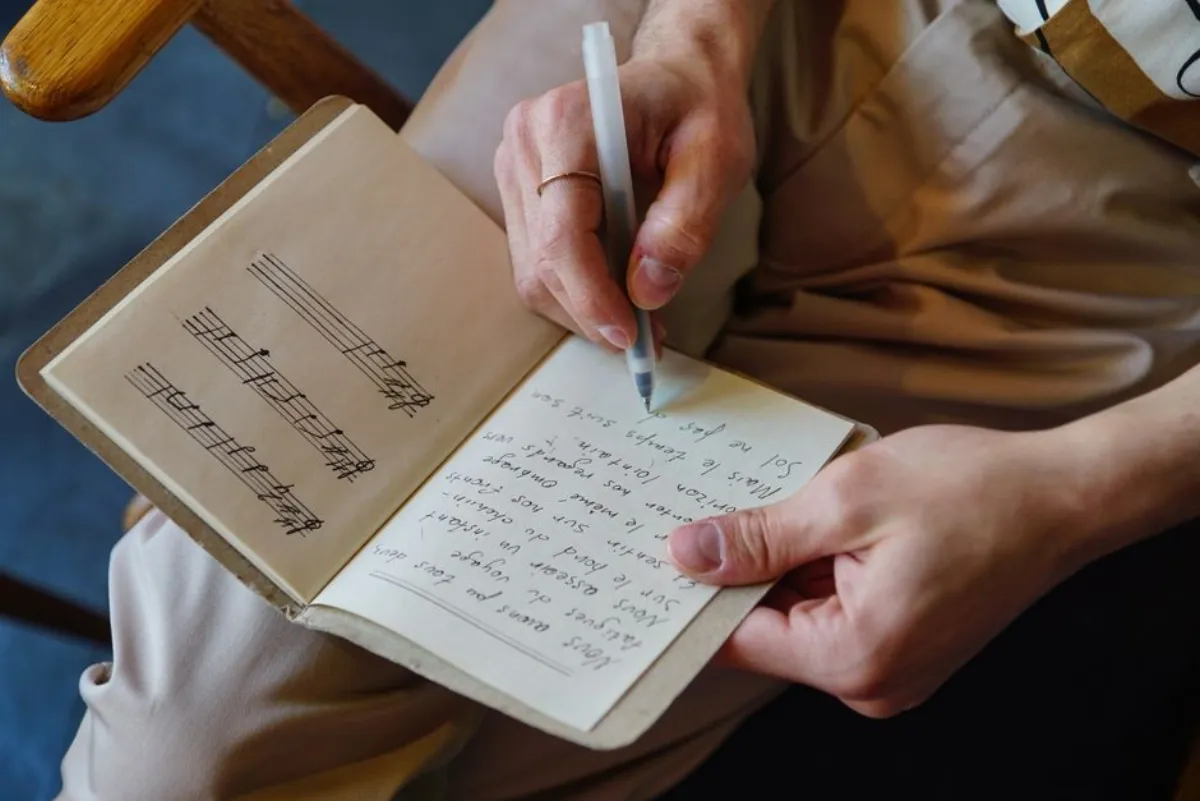 Nous avons pu tous deus
fatigues du voyage
Nous asseoir un instant
sur le bord du chemin -
Et sentir sur nos fronts
le même ombrage
nos regards vers
orizon lointain.
Mais le temps suit son
Sol ne pas